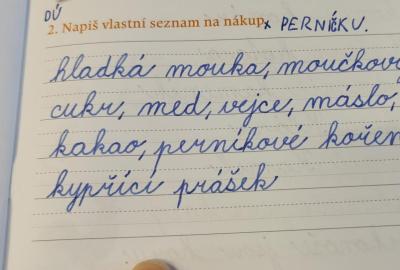 DÚ
2. Napiš vlastní seznam na nákup x PERNÍČKU.
hladká mouka, moučkov
cukr, med, vejce, máslo,
kakao, perníkové kořen
kypřící prášek